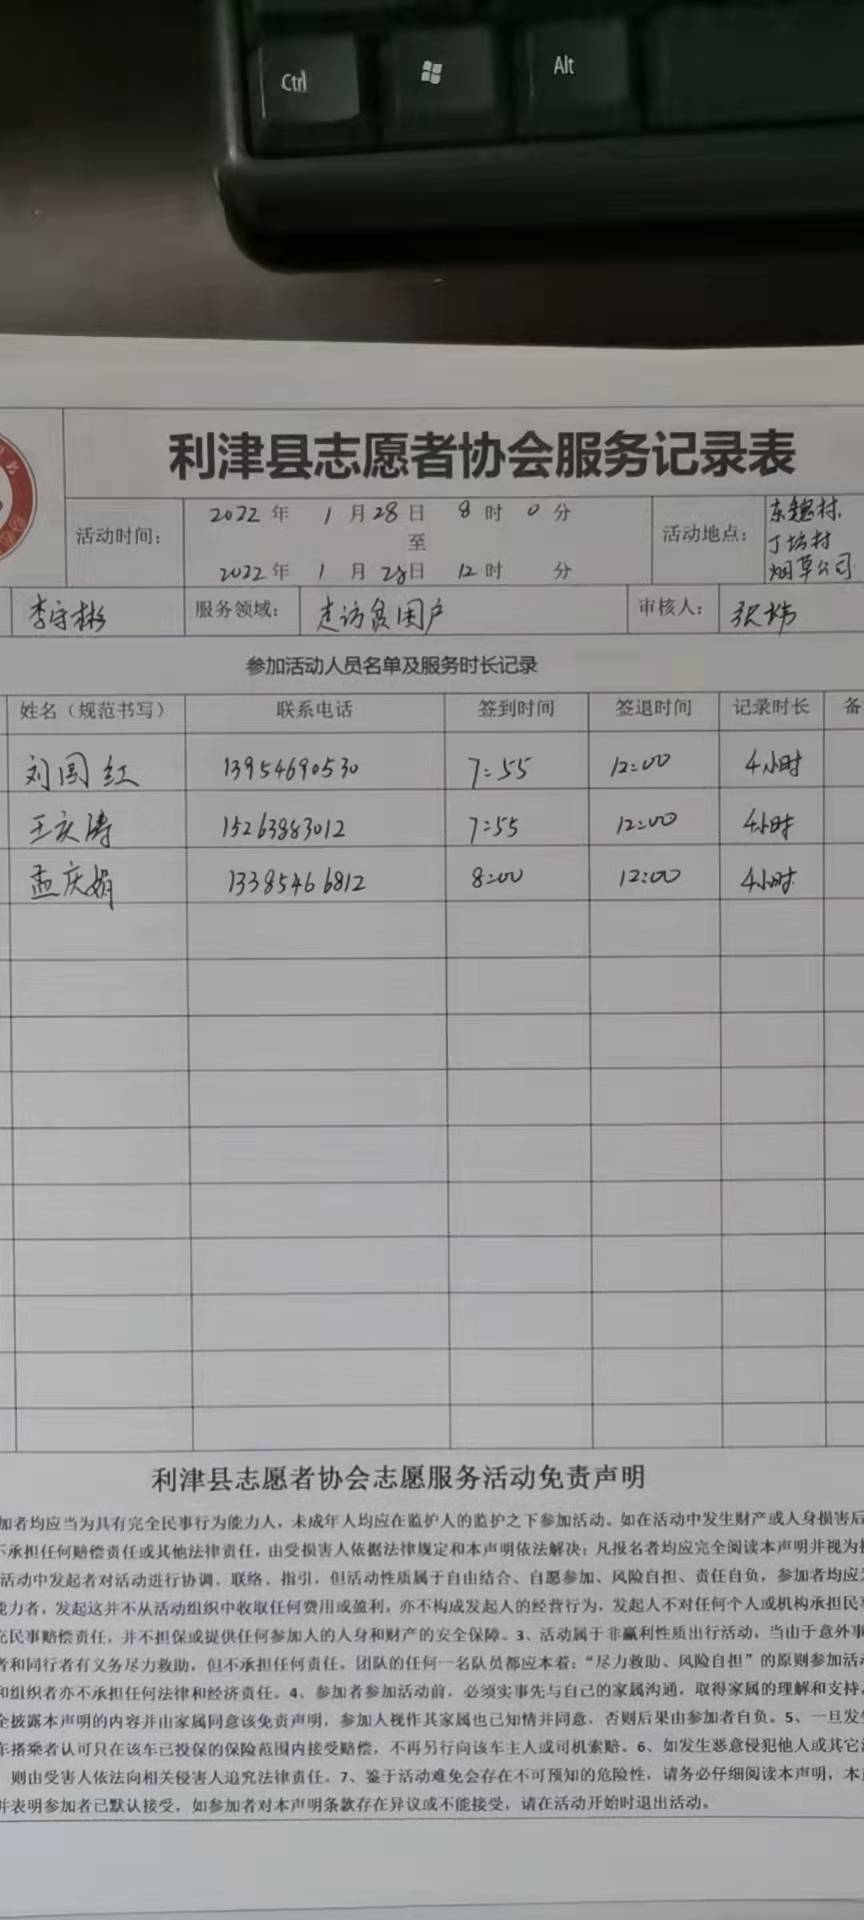 Ctrl
Alt
利津县志愿者协会服务记录表
活动时间：
2022年 1月28日 8时 0分
至
2022年 1月28日 12时 分
活动地点：
东魏村、
丁坊村
烟草公司
李守彬 服务领域： 走访贫困户 审核人： 张梅
参加活动人员名单及服务时长记录
姓名（规范书写） 联系电话 签到时间 签退时间 记录时长 备
刘国红 13954690530 7:55 12:00 4小时
王庆涛 15263883012 7:55 12:00 4小时
孟庆娟 13385466812 8:00 12:00 4小时
利津县志愿者协会志愿服务活动免责声明
加者均应当为具有完全民事行为能力人，未成年人均应在监护人的监护之下参加活动。如在活动中发生财产或人身损害后
不承担任何赔偿责任或其他法律责任，由受损害人依据法律规定和本声明依法解决；凡报名者均应完全阅读本声明并视为
活动中发起者对活动进行协调、联络、指引，但活动性质属于自由结合、自愿参加、风险自担、责任自负，参加者均应
能力者，发起这并不从活动组织中收取任何费用或盈利，亦不构成发起人的经营行为，发起人不对任何个人或机构承担民
充民事赔偿责任，并不担保或提供任何参加人的人身和财产的安全保障。3、活动属于非赢利性质出行活动，当由于意外事
者和同行者有义务尽力救助，但不承担任何责任。团队的任何一名队员都应本着：“尽力救助、风险自担”的原则参加活
和组织者亦不承担任何法律和经济责任。4、参加者参加活动前，必须实事先与自己的家属沟通，取得家属的理解和支持，
全披露本声明的内容并由家属同意该免责声明，参加人视作其家属也已知情并同意，否则后果由参加者自负。5、一旦发
车搭乘者认可只在该车已投保的保险范围内接受赔偿，不再另行向该车主人或司机索赔。6、如发生恶意侵犯他人或其它
则由受害人依法向相关侵害人追究法律责任。7、鉴于活动难免会存在不可预知的危险性，请务必仔细阅读本声明，本
并表明参加者已默认接受，如参加者对本声明条款存在异议或不能接受，请在活动开始时退出活动。